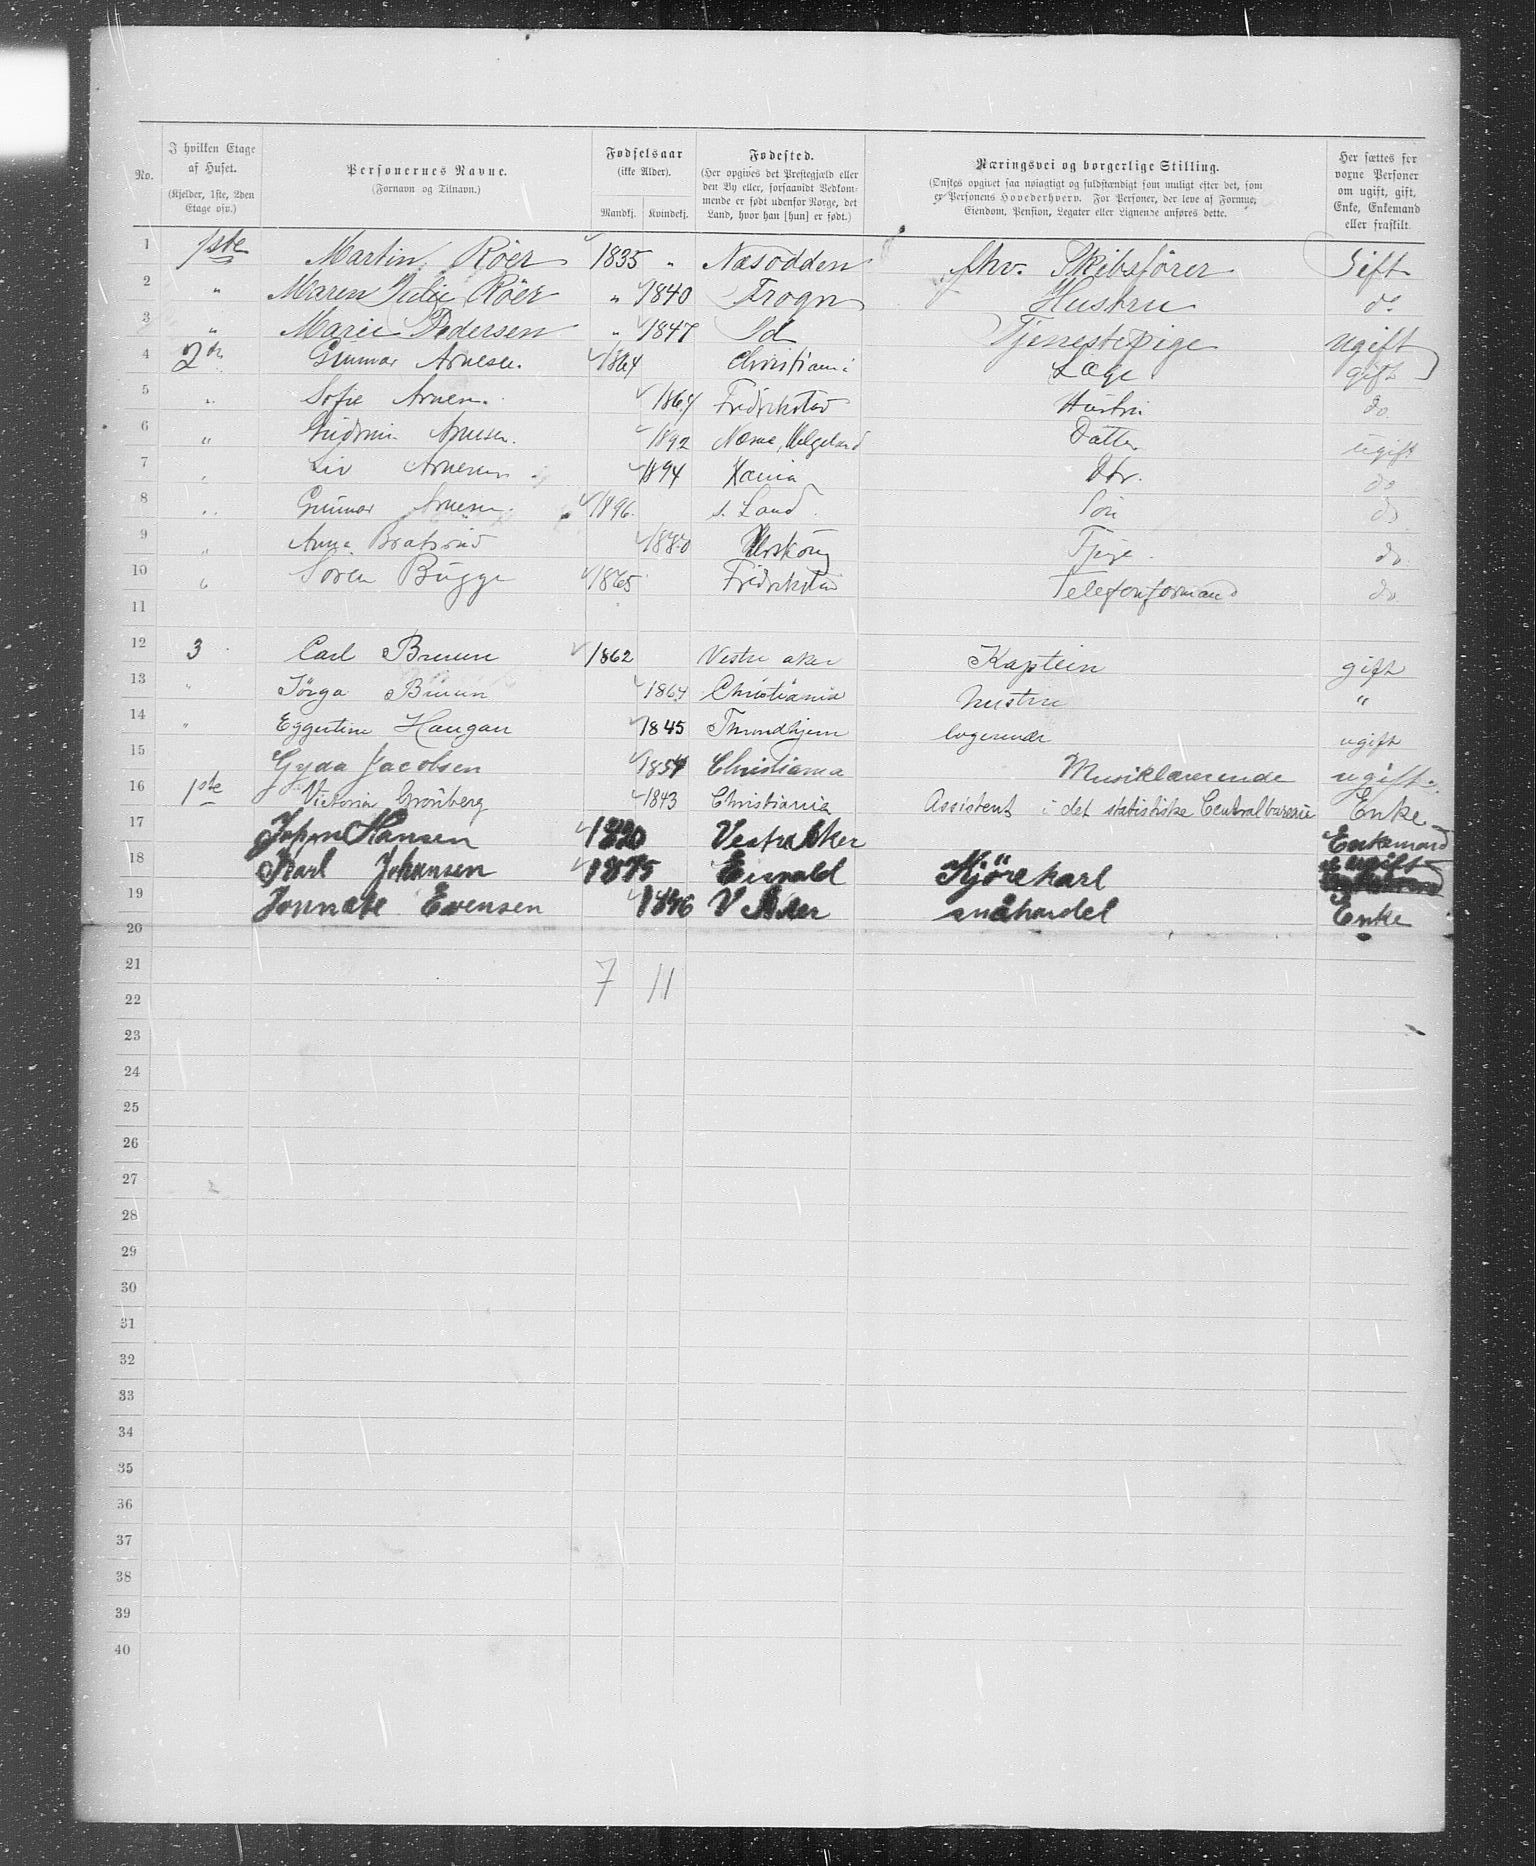 No.
I hvilken Etage af Huset. (Kjelder, 1ste, 2den Etage osv.)
Personernes Navne. (Fornavn og Tilnavn.)
Fødselsaar (ikke Alder). Mandkj. Kvindekj.
Fødested. (Her opgives det Prestegjæld eller den By eller, forsaavidt Vedkommende er født udenfor Norge, det Land, hvor han [hun] er født.)
Næringsvei og borgerlige Stilling. (Ønskes opgivet saa nøiagtigt og fuldstændigt som muligt efter det, som er Personens Hovederhverv. For Personer, der leve af Formue, Eiendom, Pension, Legater eller Lignende anføres dette.
Her sættes for voxne Personer om ugift, gift, Enke, Enkemand eller fraskilt.
1 1ste Martin Röer 1835 " Næsodden fhv. Skibsförer Gift
2 " Maren Julie Röer " 1840 Frogn Hustru do
3 " Marie Pedersen " 1847 Id Tjenestepige Ugift
4 2den Gunnar Arnesen. 1864 Christiania Læge gift
5 " Sofie Arnesen. 1864 Fredrikstad Hustru do
6 " Gudrun Arnesen. 1892 Næsne, Helgeland Datter ugift
7 " Liv Arnesen 1894 Xania Dtr. do
8 " Gunnar Arnesen. 1896 s. Land Søn do
9 " Anna Bratsrud 1880 Urskoug Tjpige do
10 " Søren Bugge 1865 Fredrikstad Telegfonformand do
11
12 3 Carl Bruun 1862 Vestre aker Kaptein gift
13 " Sørga Bruun 1864 Christiania hustru "
14 " Eggertine Haugan 1845 Trondhjem logerende ugift
15 Gyda Jacobsen 1854 Christiania Musiklærerinde ugift.
16 1ste Victoria Grönberg 1843 Christiania Assistent i det statistiske Centralbureau Enke
17 Johan Hansen 1820 Vestre Aker Enkemand
18 Karl Johansen 1875 Eisvald Kjörekarl ugift
19 Jonnate Evensen 1846 V Aker småhandel Enke
20
21 7 11
22
23
24
25
26
27
28
29
30
31
32
33
34
35
36
37
38
39
40